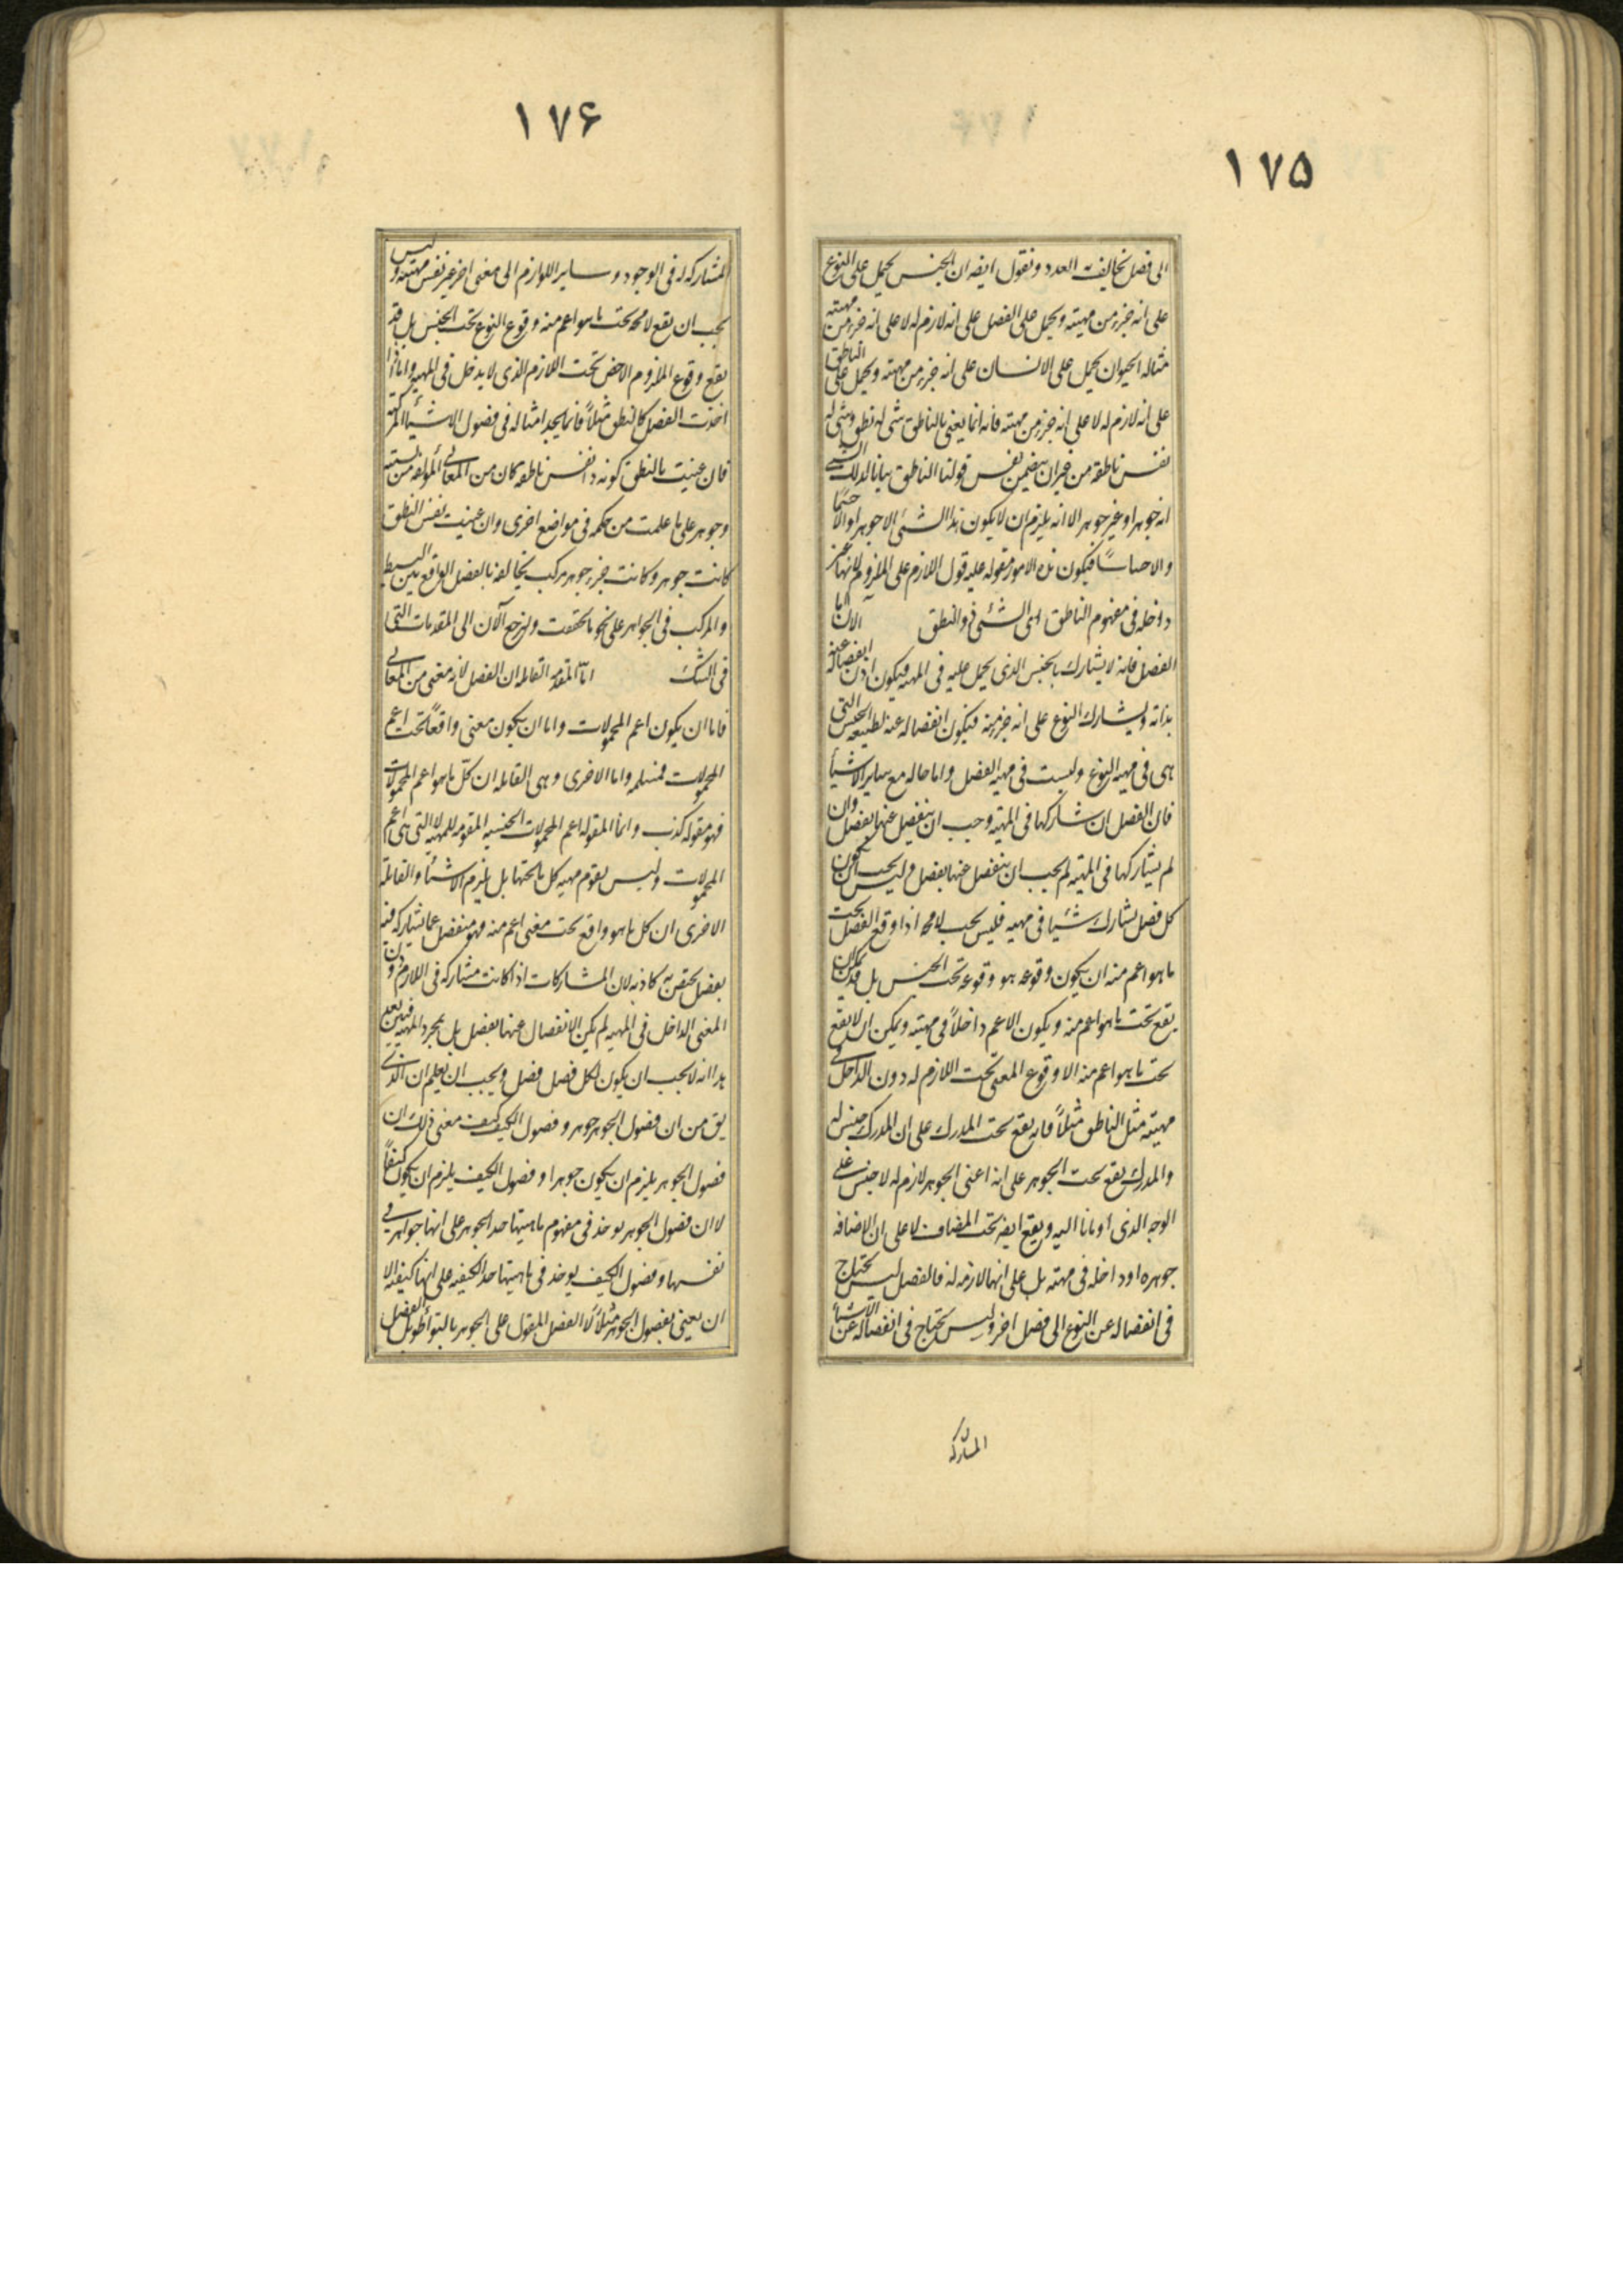 ١٧۵
الى فصل يخالف العدد ونقول ايضه ان الجنس يحمل على النوع
على انه جزء من مهيته ويحمل على الفصل على انه لازم له لا على انه جزء من مهيته
مثاله الحيوان يحمل على الانسان على انه جزء من مهيته ويحمل على الناطق
على انه لازم له لا على انه جزء من مهيته فانه انما يعنى بالناطق شى له نطق وشى له
نفس ناطقة من غير ان يتضمن نفس قولنا الناطق بيانا لذلك الشى
انه جوهر او غير جوهر الا انه يلزم ان لا يكون هذا الشئ الا جوهرا والا جسما
والا حساسًا فيكون هذه الامور مقوله عليه قول اللازم على الملزوم لانها غير
داخله فى مفهوم الناطق اى الشئ ذو النطق الان اما
الفصل فانه لا يشارك بالجنس الذى يحمل عليه فى المهيه فيكون اذن انفصاله عنه
بذاته ويشارك النوع على انه جزء منه فيكون انفصاله عنه لطبيعه الجنس التى
هى فى مهيه النوع وليست فى مهيه الفصل واما حاله مع ساير الاشيأ
فان الفصل ان شاركها فى المهيه وجب ان ينفصل عنها بفصل وان
لم يشاركها فى المهيه لم يجب ان ينفصل عنها بفصل وليس يجب ان يكون
كل فصل يشارك شيئا فى مهيه فليس يجب لامحه اذا وقع الفصل تحت
ما هو اعم منه ان يكون وقوعه هو وقوعه تحت الجنس بل قد يمكن ان
يقع تحت ما هو اعم منه ويكون الاعم داخلاً فى مهيته ويمكن ان لا يقع
تحت ما هو اعم منه الا وقوع المعنى تحت اللازم له دون الداخل فى
مهيته مثل الناطق مثلاً فانه يقع تحت المدرك على ان المدرك جنس له
والمدرك يقع تحت الجوهر على انه اعنى الجوهر لازم له لا جنس على
الوجه الذى اومانا اليه ويقع ايضه تحت المضاف لا على ان الاضافه
جوهره او داخله فى مهيته بل على انها لازمه له فالفصل ليس يحتاج
فى انفصاله عن النوع الى فصل اخر وليس يحتاج فى انفصاله عن الاشيأ
المشاركه
١٧۶
المشاركه له فى الوجود وساير اللوازم الى معنى اخر غير نفس مهيته وليس
يجب ان يقع لامحه تحت ما هو اعم منه وقوع النوع تحت الجنس بل قد
يقع وقوع الملزوم الاخص تحت اللازم الذى لا يدخل فى المهيه واما اذا
اخذت الفصل كالنطق مثلاً فانما يجد امثاله فى فصول الاشيأ المركبه
فان عنيت بالنطق كونه ذا نفس ناطقه كان من المعانى المولفه من نسبته
وجوهر على ما علمت من حكمه فى مواضع اخرى وان عنيت نفس النطق
كانت جوهر وكانت جزء جوهر مركب يخالفه بالفصل الواقع بين البسيط
والمركب فى الجواهر على نحو ما تحققت ولنرجع الآن الى المقدمات التى
فى الشك اما المقدمه القايله ان الفصل لانه معنى من المعانى
فاما ان يكون اعم المحمولات واما ان يكون معنى واقعًا تحت اعم
المحمولات فمسلمه واما الاخرى وهى القايله ان كل ما هو اعم المحمولات
فهو مقوله كذب وانما المقوله اعم المحمولات الجنسيه المقومه للمهيه لا التى هى اعم
المحمولات وليس يقوم مهيه كل ما تحتها بل يلزم الاشيأ والقايله
الاخرى ان كل ما هو واقع تحت معنى اعم منه فهو منفصل عما يشاركه فيه
بفصل يختص به كاذبه لان المشاركات اذا كانت مشاركه فى اللازم دون
المعنى الداخل فى المهيه لم يكن الانفصال عنها بفصل بل بمجرد المهيه فيتبين بعد
هذا انه لا يجب ان يكون لكل فصل فصل ويجب ان يعلم ان الذى
يق من ان فصول الجوهر جوهر وفصول الكيف كيف معنى ذلك ان
فصول الجوهر يلزم ان يكون جوهرا وفصول الكيف يلزم ان يكون كيفًا
لا ان فصول الجوهر يوخذ فى مفهوم ماهيتها حد الجوهر على انها جواهر فى
نفسها وفصول الكيف يوخذ فى ماهيتها حد الكيفيه على انها كيفيه الا
ان يعنى بفصول الجوهر مثلاً لا الفصل المقول على الجوهر بالتواطو بل الفصل